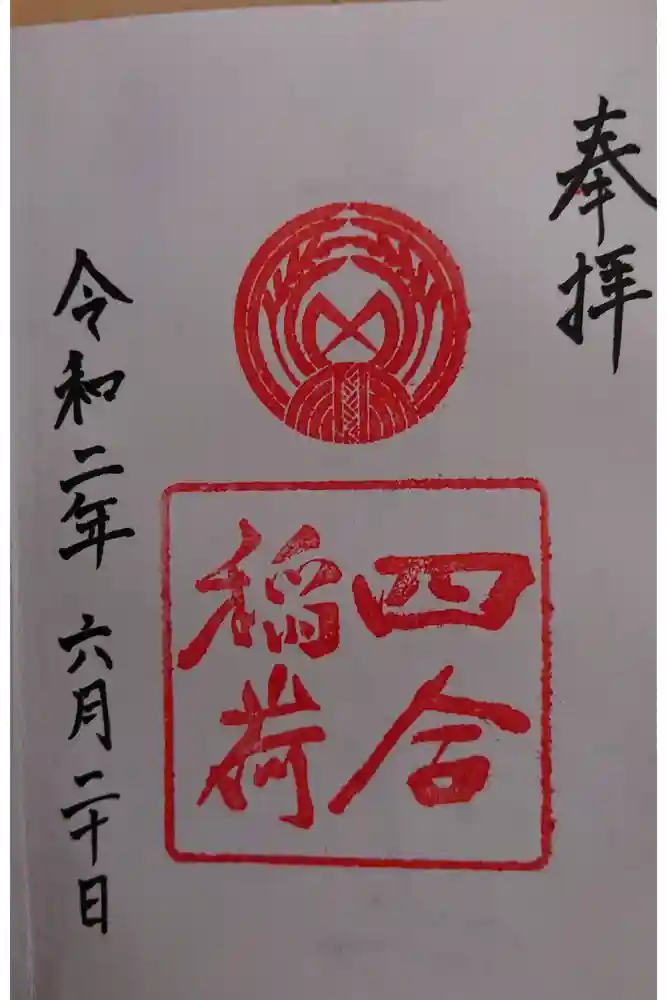 奉拝
四合
稲荷
令和二年 六月二十日